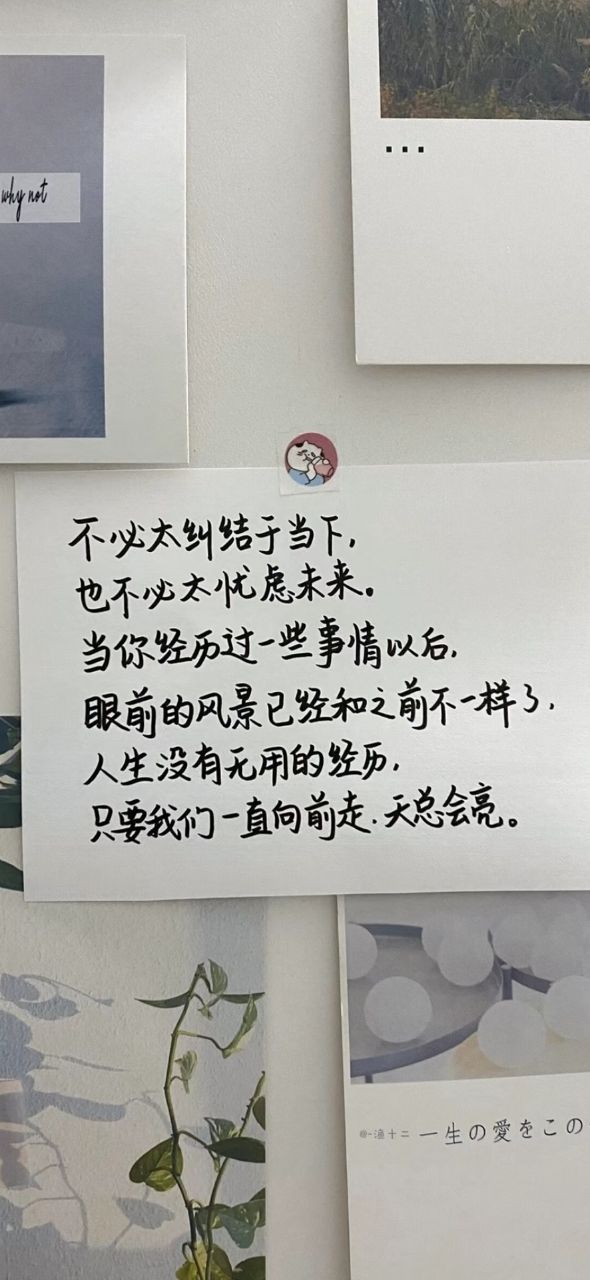 why not
...
不必太纠结于当下,
也不必太忧虑未来。
当你经历过一些事情以后,
眼前的风景已经和之前不一样了,
人生没有无用的经历,
只要我们一直向前走.天总会亮。
一生の愛をこの